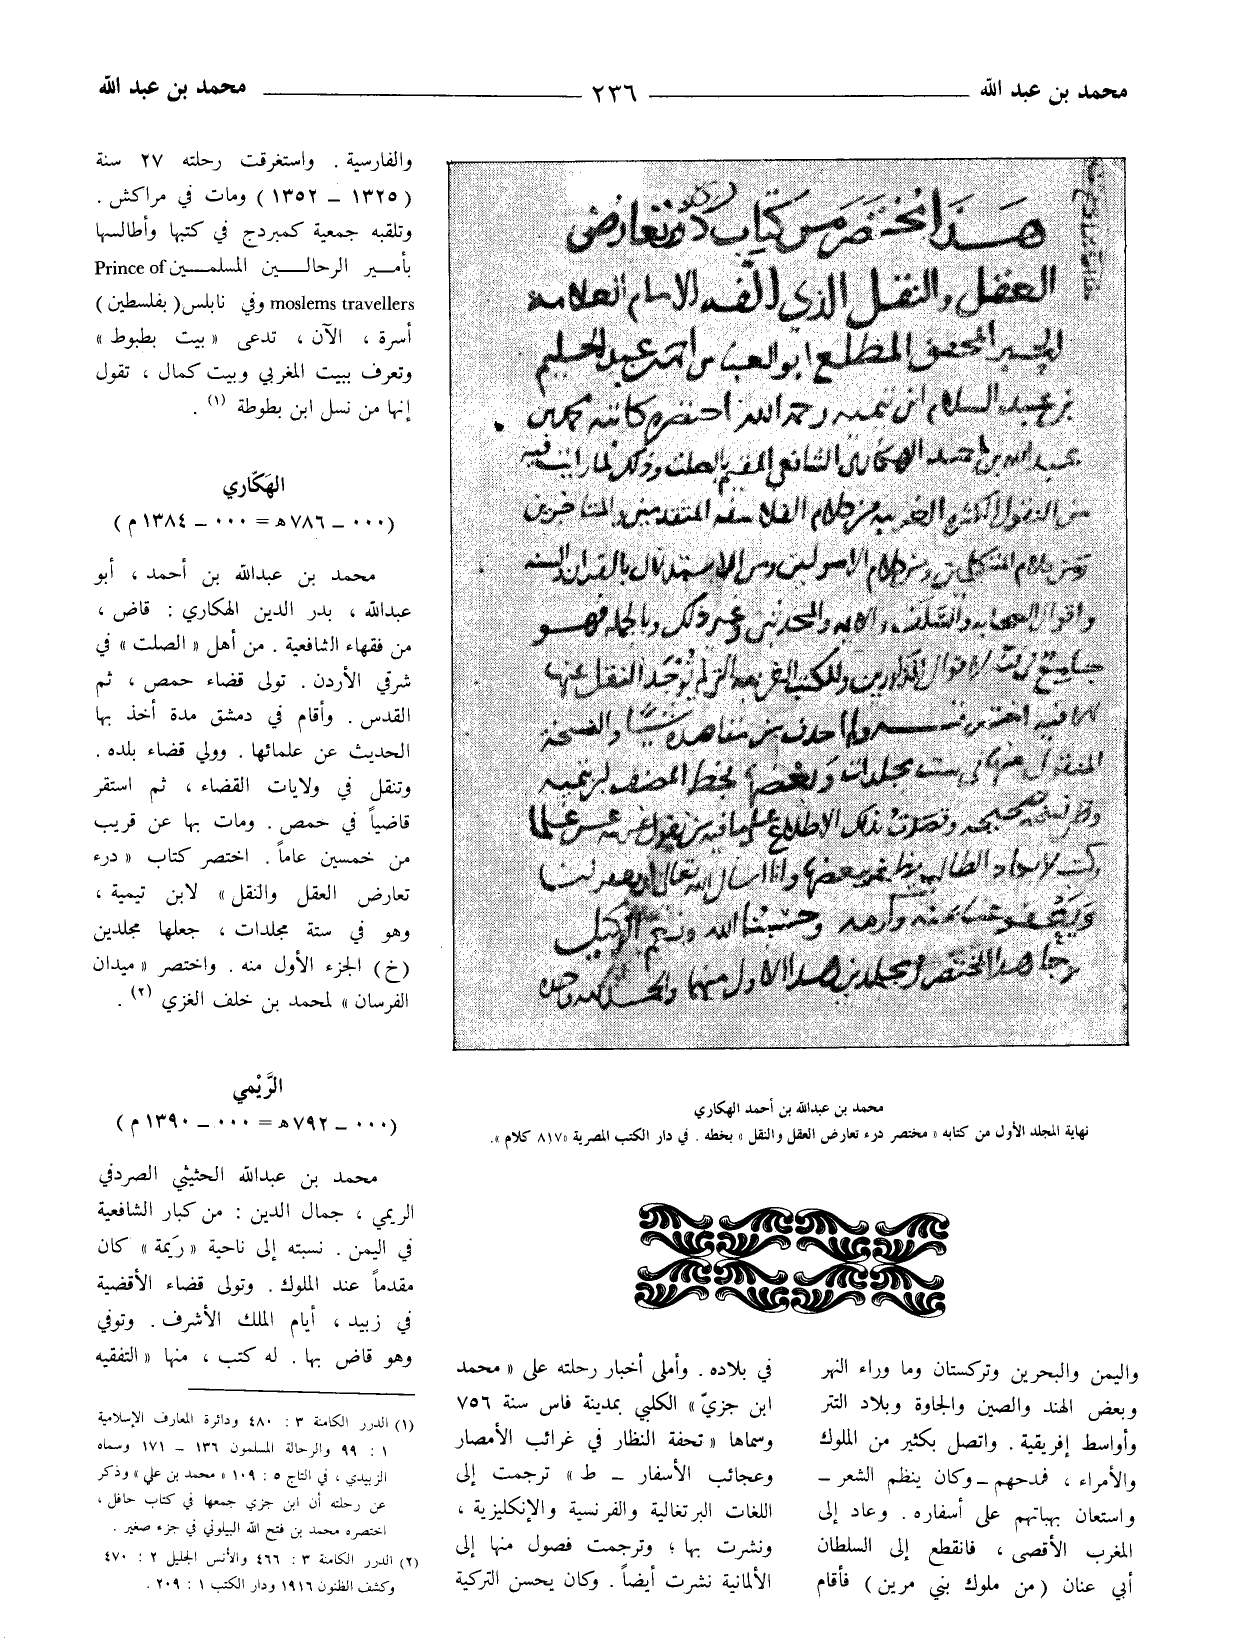 محمد بن عبد الله
٢٣٦
محمد بن عبد الله
هذا مختصر من كتاب درء تعارض
العقل والنقل الذي ألفه الامام العلامة
الحبر المحقق المطلع ابو العباس احمد بن عبد الحليم
بن عبد السلام ابن تيمية رحمه الله اختصره كاتبه محمد بن
عبد الله بن احمد الهكاري الشافعي المقيم بالصلت وذلك لما رايت فيه
من النقول الكثيرة الغريبة من كلام الفلاسفة المتقدمين والمتاخرين
ومن كلام المتكلمين ومن كلام الاصوليين ومن الاستدلال بالقران والسنه
واقوال الصحابه والسلف والايمه والمحدثين وغير ذلك وبالجملة فهو
المنقول منها في ست مجلدات وبعضها بخط المصنف ابن تيميه
وحسبنا الله ونعم الوكيل
محمد بن عبدالله بن أحمد الهكاري
نهاية المجلد الأول من كتابه « مختصر درء تعارض العقل والنقل » بخطه . في دار الكتب المصرية «٨١٧ كلام ».
واليمن والبحرين وتركستان وما وراء النهر
وبعض الهند والصين والجاوة وبلاد التتر
وأواسط إفريقية . واتصل بكثير من الملوك
والأمراء ، فمدحهم – وكان ينظم الشعر –
واستعان بهباتهم على أسفاره . وعاد إلى
المغرب الأقصى ، فانقطع إلى السلطان
أبي عنان (من ملوك بني مرين) فأقام
في بلاده . وأملى أخبار رحلته على « محمد
ابن جزيّ» الكلبي بمدينة فاس سنة ٧٥٦
وسماها « تحفة النظار في غرائب الأمصار
وعجائب الأسفار – ط » ترجمت إلى
اللغات البرتغالية والفرنسية والإنكليزية ،
ونشرت بها ؛ وترجمت فصول منها إلى
الألمانية نشرت أيضاً . وكان يحسن التركية
والفارسية . واستغرقت رحلته ٢٧ سنة
(١٣٢٥ – ١٣٥٢) ومات في مراكش .
وتلقبه جمعية كمبردج في كتبها وأطالسها
بأمير الرحالين المسلمين Prince of
moslems travellers وفي نابلس (بفلسطين)
أسرة ، الآن ، تدعى « بيت بطبوط »
وتعرف ببيت المغربي وبيت كمال ، تقول
إنها من نسل ابن بطوطة (١) .
الهَكّاري
(٠٠٠ – ٧٨٦ هـ = ٠٠٠ – ١٣٨٤ م)
محمد بن عبدالله بن أحمد ، أبو
عبدالله ، بدر الدين الهكاري : قاض ،
من فقهاء الشافعية . من أهل « الصلت » في
شرقي الأردن . تولى قضاء حمص ، ثم
القدس . وأقام في دمشق مدة أخذ بها
الحديث عن علمائها . وولي قضاء بلده .
وتنقل في ولايات القضاء ، ثم استقر
قاضياً في حمص . ومات بها عن قريب
من خمسين عاماً . اختصر كتاب « درء
تعارض العقل والنقل » لابن تيمية ،
وهو في ستة مجلدات ، جعلها مجلدين
(خ) الجزء الأول منه . واختصر « ميدان
الفرسان » لمحمد بن خلف الغزي (٢) .
الرَّيْمي
(٠٠٠ – ٧٩٢ هـ = ٠٠٠ – ١٣٩٠ م)
محمد بن عبدالله الحثيثي الصردفي
الريمي ، جمال الدين : من كبار الشافعية
في اليمن . نسبته إلى ناحية « رَيمة » كان
مقدماً عند الملوك . وتولى قضاء الأقضية
في زبيد ، أيام الملك الأشرف . وتوفي
وهو قاض بها . له كتب ، منها « التفقيه
(١) الدرر الكامنة ٣ : ٤٨٠ ودائرة المعارف الإسلامية
١ : ٩٩ والرحالة المسلمون ١٣٦ – ١٧١ وسماه
الزبيدي ، في التاج ٥ : ١٠٩ « محمد بن علي » وذكر
عن رحلته أن ابن جزي جمعها في كتاب حافل ،
اختصره محمد بن فتح الله البيلوني في جزء صغير .
(٢) الدرر الكامنة ٣ : ٤٦٦ والأنس الجليل ٢ : ٤٧٠
وكشف الظنون ١٩١٦ ودار الكتب ١ : ٢٠٩ .